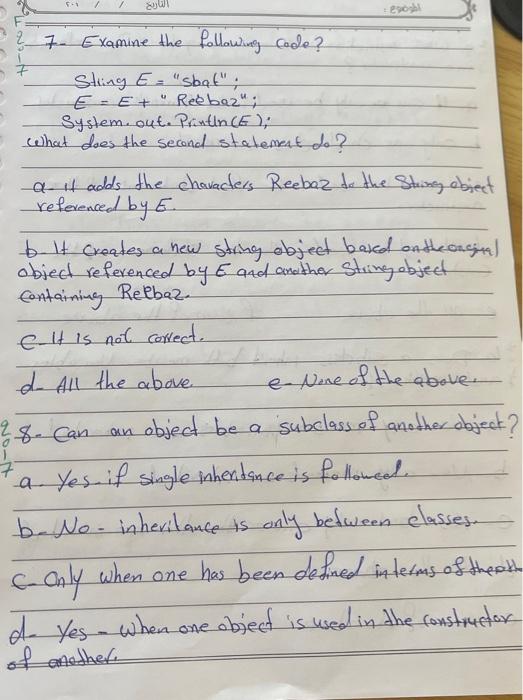 التاريخ / /
الموضوع :
F
2017
7- Examine the following code?
String E = "sbat" ;
E = E + " Reebaz" ;
System.out.Println(E);
What does the second statement do?
a- it adds the characters Reebaz to the String object
referenced by E.
b- It creates a new string object based on the original
object referenced by E and another String object
containing Reebaz.
c- It is not correct.
d- All the above. e- None of the above.
2017
8- Can an object be a subclass of another object?
a- Yes- if single inheritance is followed.
b- No- inheritance is only between classes.
c- Only when one has been defined in terms of the oth
d- Yes - when one object is used in the constructor
of another.